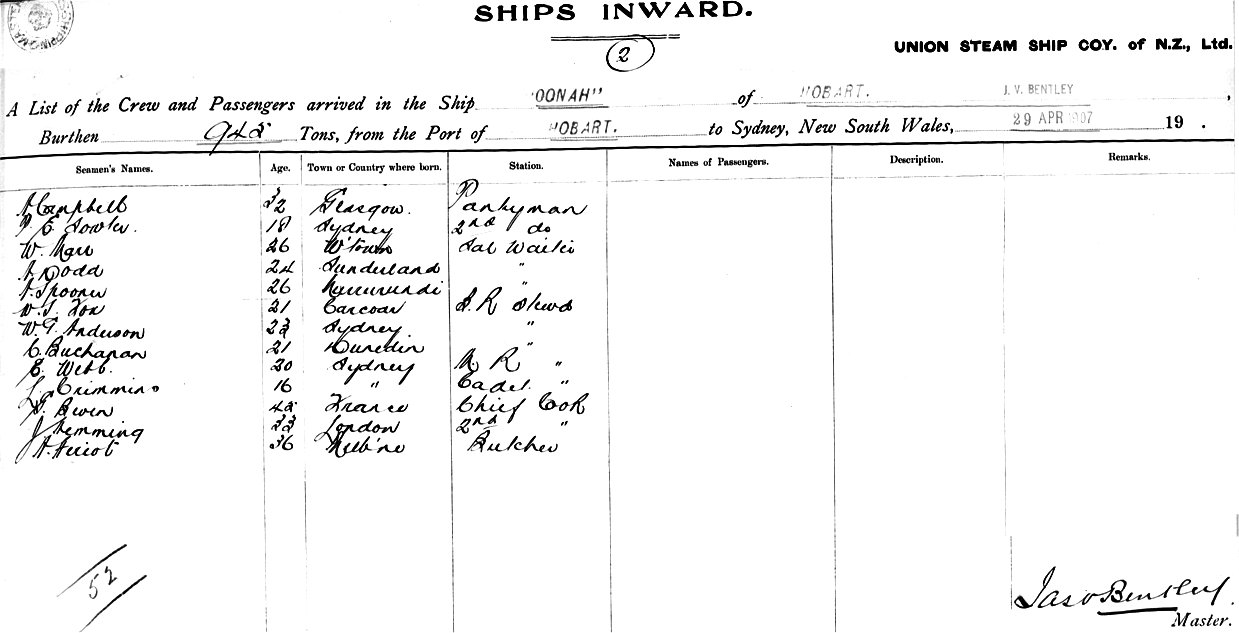 SHIPS INWARD.
2
UNION STEAM SHIP COY. of N.Z., Ltd.
A List of the Crew and Passengers arrived in the Ship "OONAH" of HOBART. J. V. BENTLEY,
Burthen 945 Tons, from the Port of HOBART. to Sydney, New South Wales, 29 APR 1907 19 .
Seamen's Names. Age. Town or Country where born. Station. Names of Passengers. Description. Remarks.
A Campbell 32 Glasgow. Pantryman
E Fowler. 18 Sydney 2nd do
W. Marr 26 W'town Sal Waiter
A Dodd 24 Sunderland "
A. Spooner 26 Murrurundi "
W. S. Fox 21 Carcoar S. R Stewd
W. G. Anderson 23 Sydney "
C. Buchanan 21 Dunedin "
E. Webb. 20 Sydney M. R "
L. Crimmins 16 " Cadet "
Bwen 45 France Chief Cook
J Hemming 33 London 2nd "
A. 36 Melb'ne Butcher
52
Jas V Bentley.
Master.